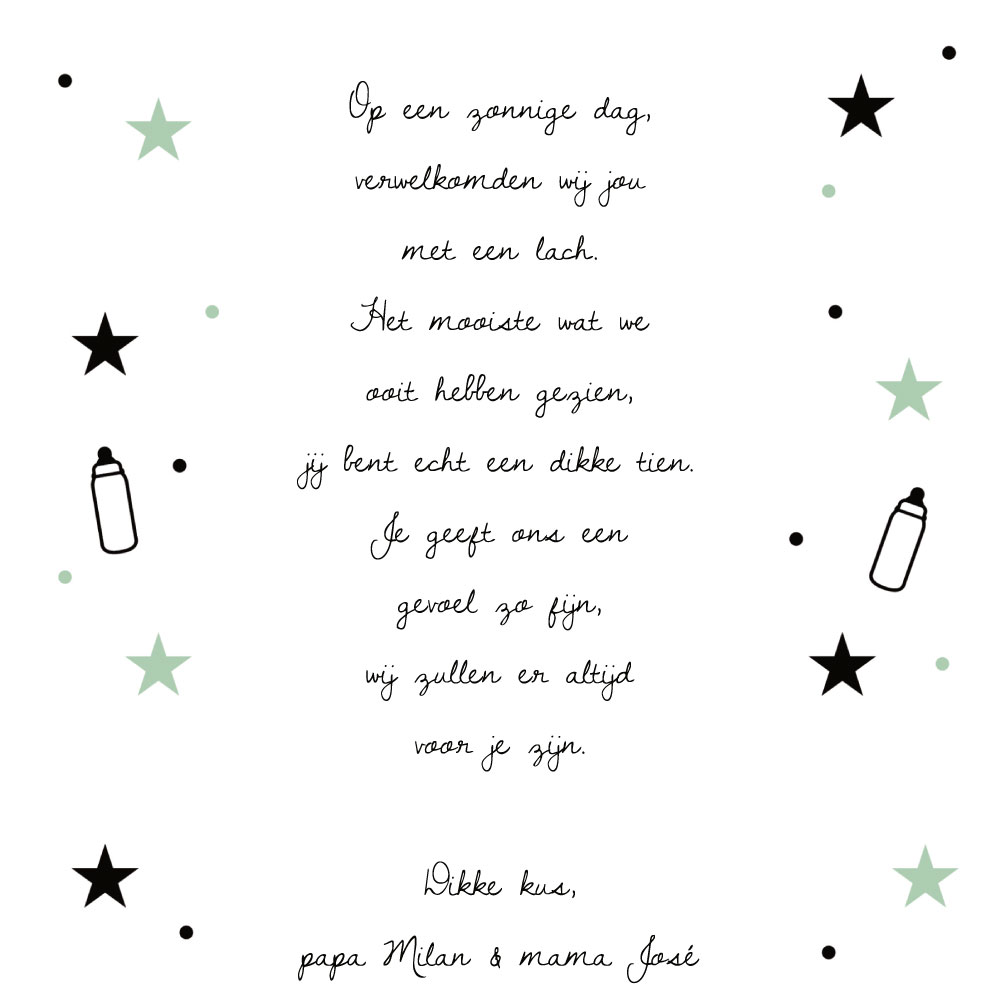 Op een zonnige dag,
verwelkomden wij jou
met een lach.
Het mooiste wat we
ooit hebben gezien,
jij bent echt een dikke tien.
Je geeft ons een
gevoel zo fijn,
wij zullen er altijd
voor je zijn.
Dikke kus,
papa Milan & mama José